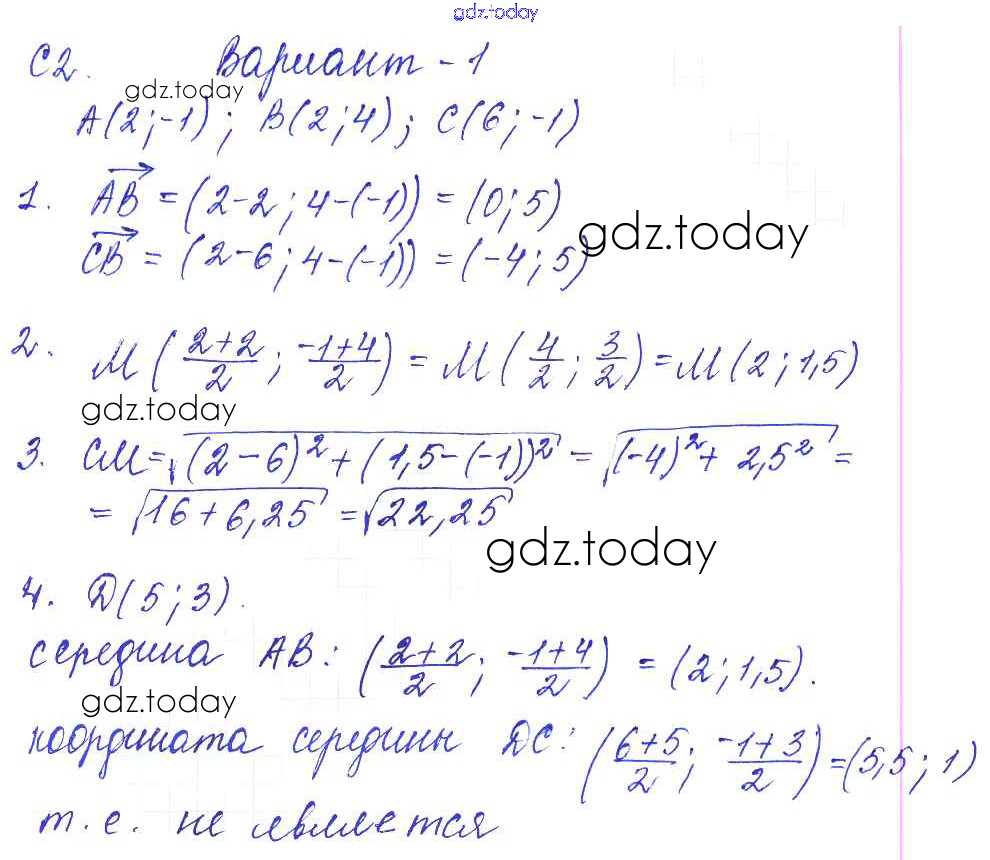 gdz.today
С2. Вариант - 1
gdz.today
A(2;-1); B(2;4); C(6;-1)
1. AB = (2-2; 4-(-1)) = (0; 5)
gdz.today
CB = (2-6; 4-(-1)) = (-4; 5)
2. M((2+2)/2; (-1+4)/2) = M(4/2; 3/2) = M(2; 1,5)
gdz.today
3. CM = √((2-6)²+(1,5-(-1))²) = √((-4)²+2,5²) =
= √(16+6,25) = √(22,25)
gdz.today
4. D(5;3).
середина AB: ((2+2)/2; (-1+4)/2) = (2; 1,5).
gdz.today
координата середины DC: ((6+5)/2; (-1+3)/2) = (5,5; 1)
т.е. не является